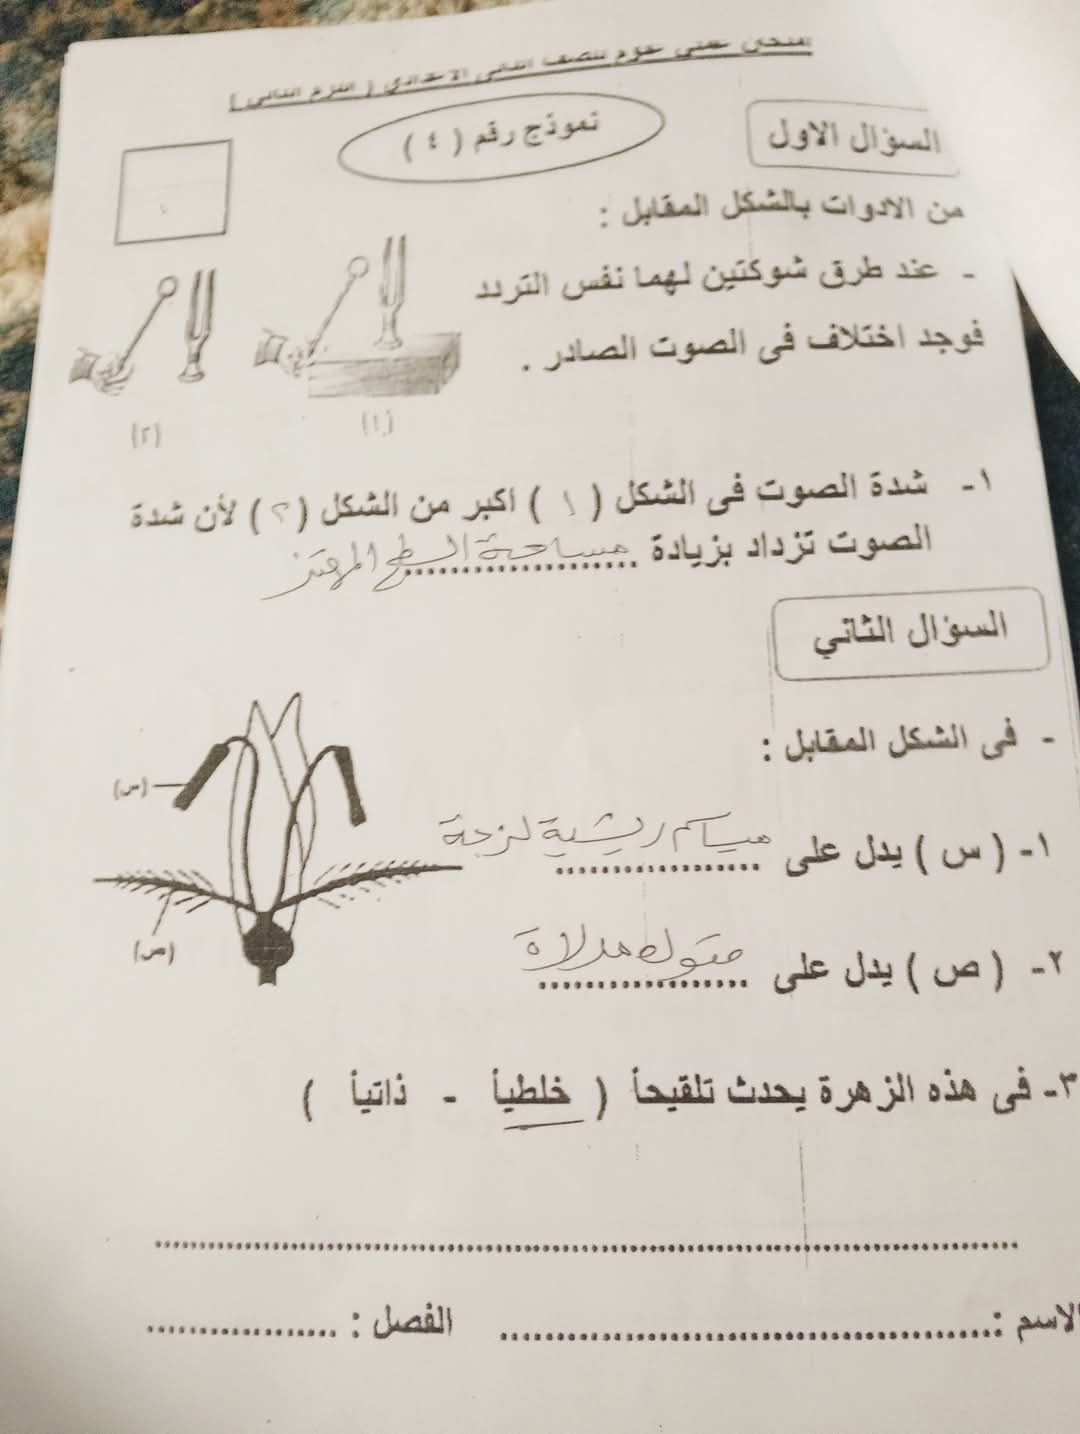 امتحان عملى علوم للصف الثانى الاعدادي ( الترم الثانى )
نموذج رقم ( ٤ )
السؤال الاول
من الادوات بالشكل المقابل :
- عند طرق شوكتين لهما نفس التردد
فوجد اختلاف فى الصوت الصادر .
(١)
(٢)
١- شدة الصوت فى الشكل ( ١ ) اكبر من الشكل ( ٢ ) لأن شدة
الصوت تزداد بزيادة مساحة السطح المهتز
السؤال الثاني
- فى الشكل المقابل :
(س)
١- ( س ) يدل على مياسم ريشية لزجة
(ص)
٢- ( ص ) يدل على متوك مدلاة
٣- فى هذه الزهرة يحدث تلقيحأ ( خلطيأ - ذاتيأ )
الاسم : .................... الفصل : ....................